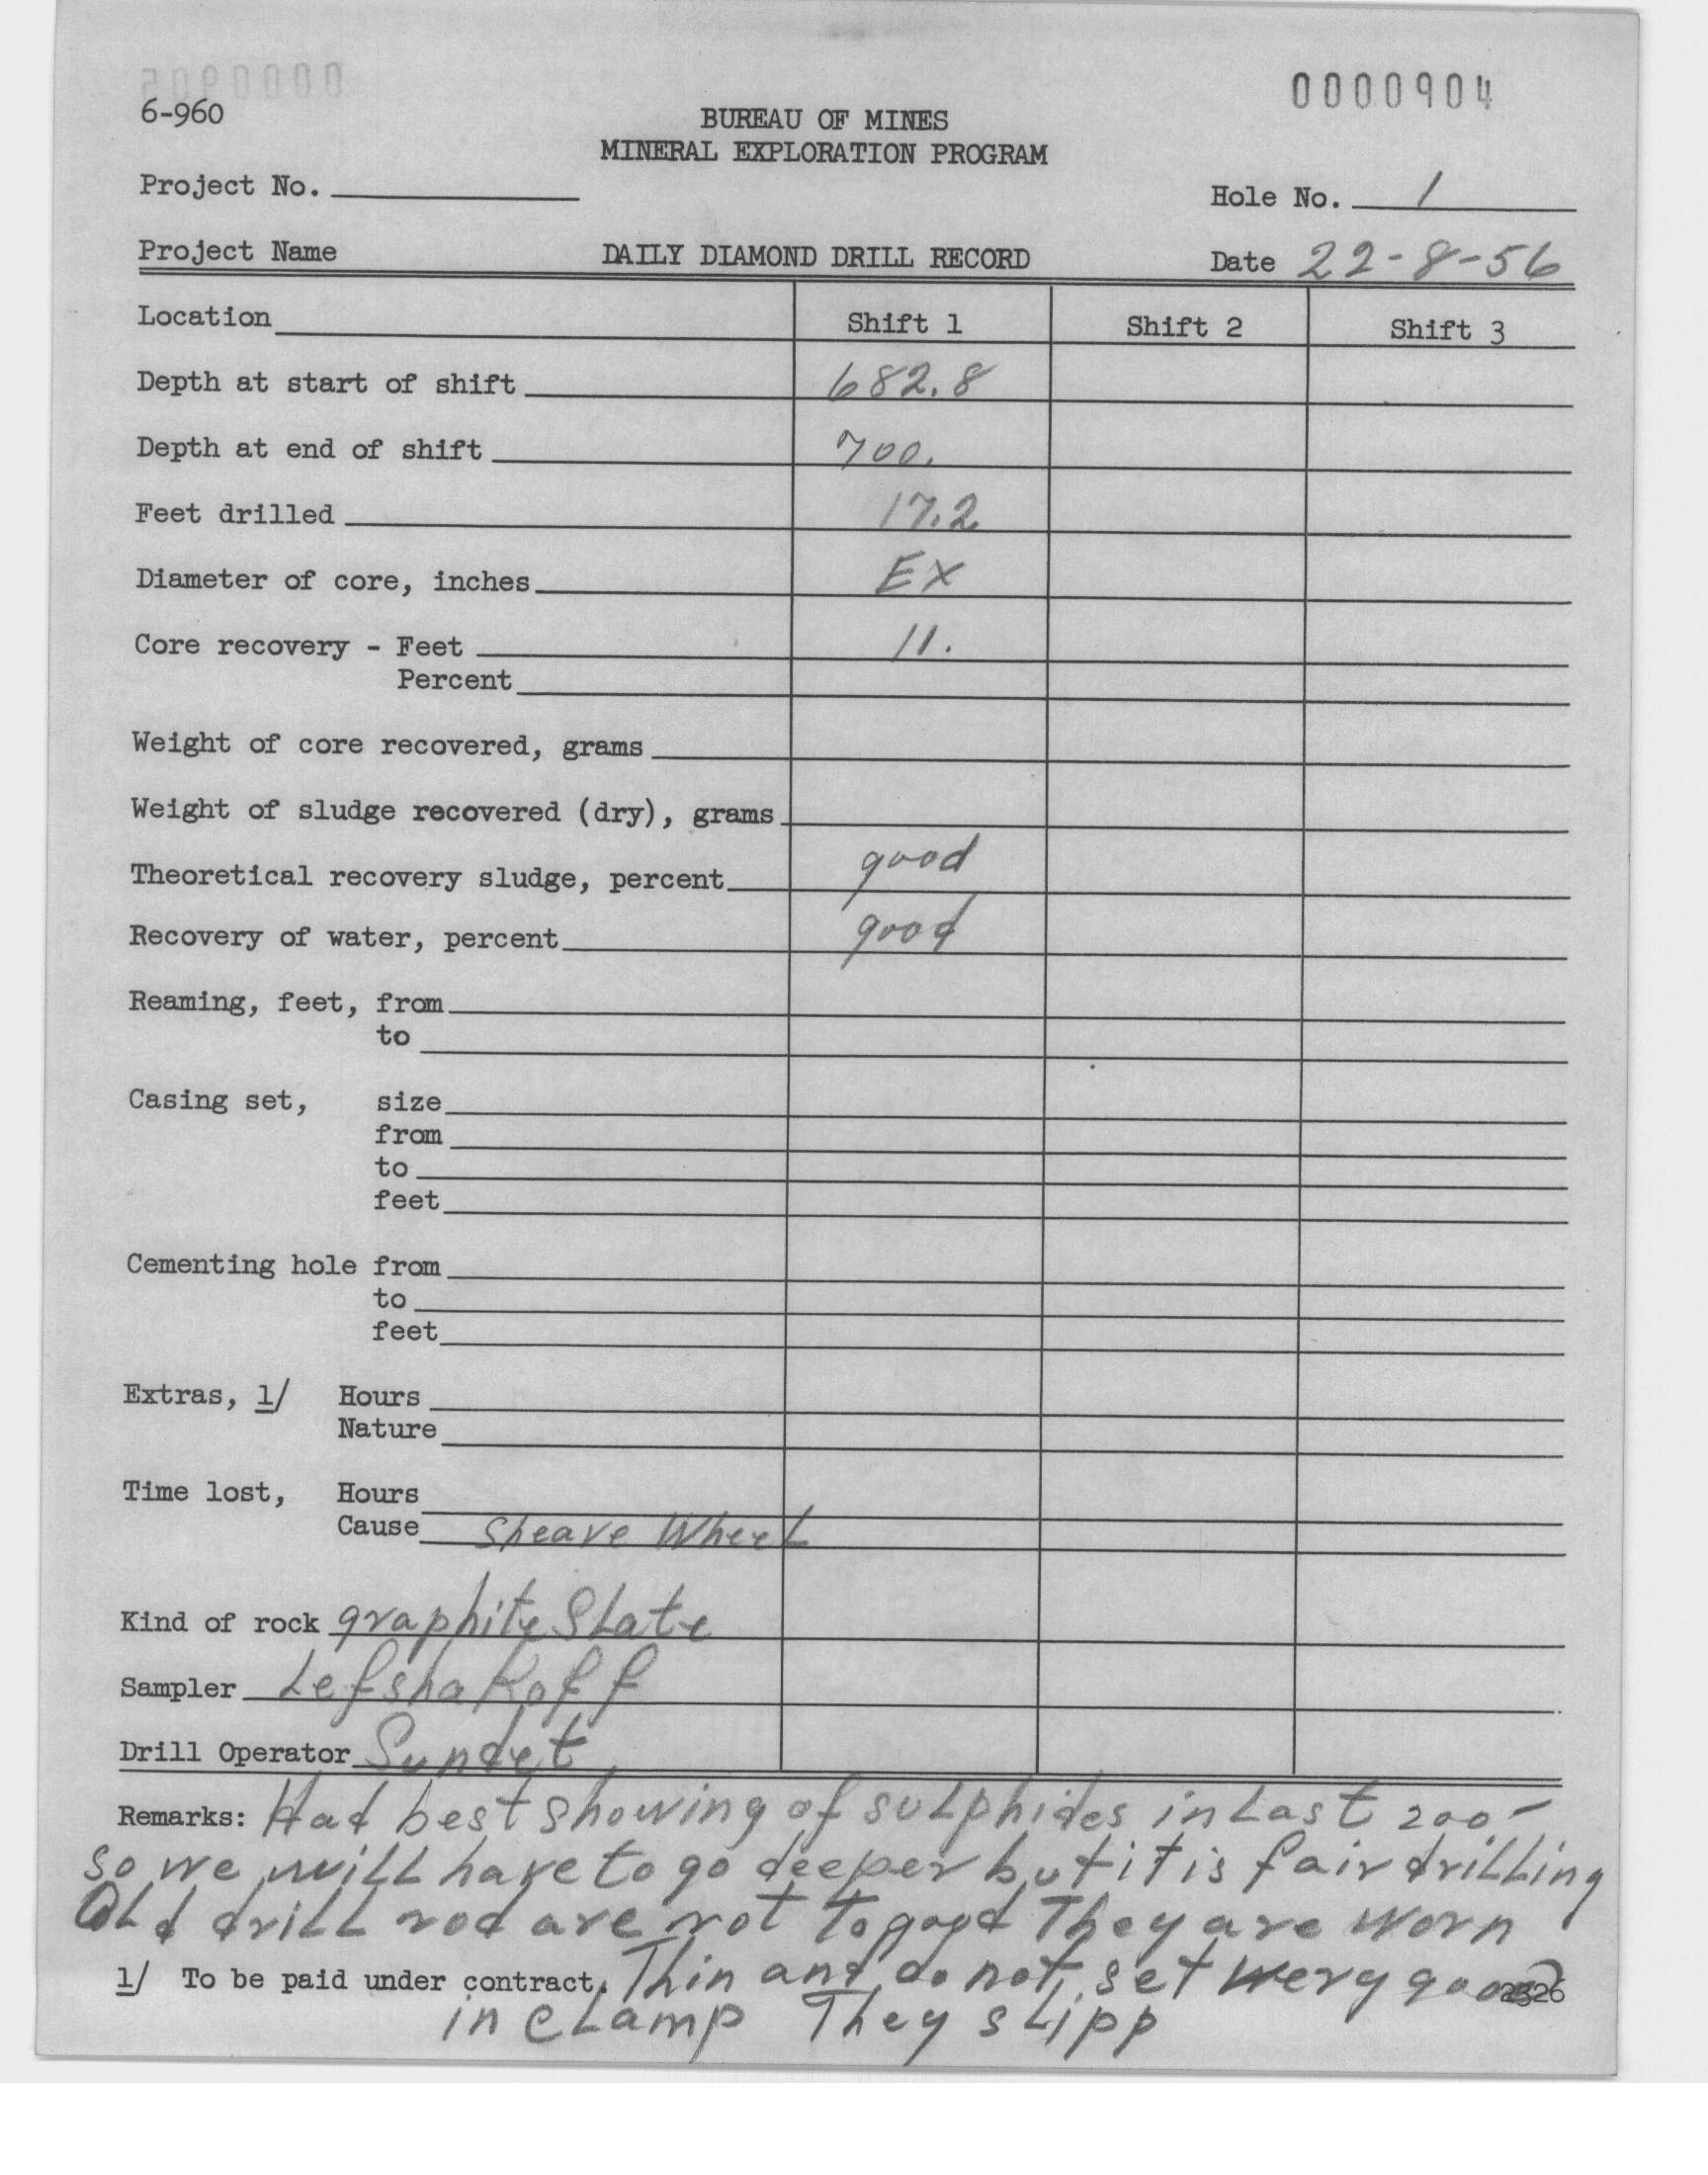 0000904
6-960
BUREAU OF MINES
MINERAL EXPLORATION PROGRAM
Project No.
Hole No. 1
Project Name DAILY DIAMOND DRILL RECORD Date 22-8-56
Location Shift 1 Shift 2 Shift 3
Depth at start of shift 682.8
Depth at end of shift 700.
Feet drilled 17.2
Diameter of core, inches EX
Core recovery - Feet 11.
Percent
Weight of core recovered, grams
Weight of sludge recovered (dry), grams
Theoretical recovery sludge, percent good
Recovery of water, percent good
Reaming, feet, from
to
Casing set, size
from
to
feet
Cementing hole from
to
feet
Extras, 1/ Hours
Nature
Time lost, Hours
Cause Sheave Wheel
Kind of rock graphite Slate
Sampler Lefshakoff
Drill Operator Sundet
Remarks: Had best showing of sulphides in Last 200-
so we will have to go deeper but it is fair drilling
Old drill rod are not to good They are worn
1/ To be paid under contract. Thin and do not set wery good
in cLamp They sLipp